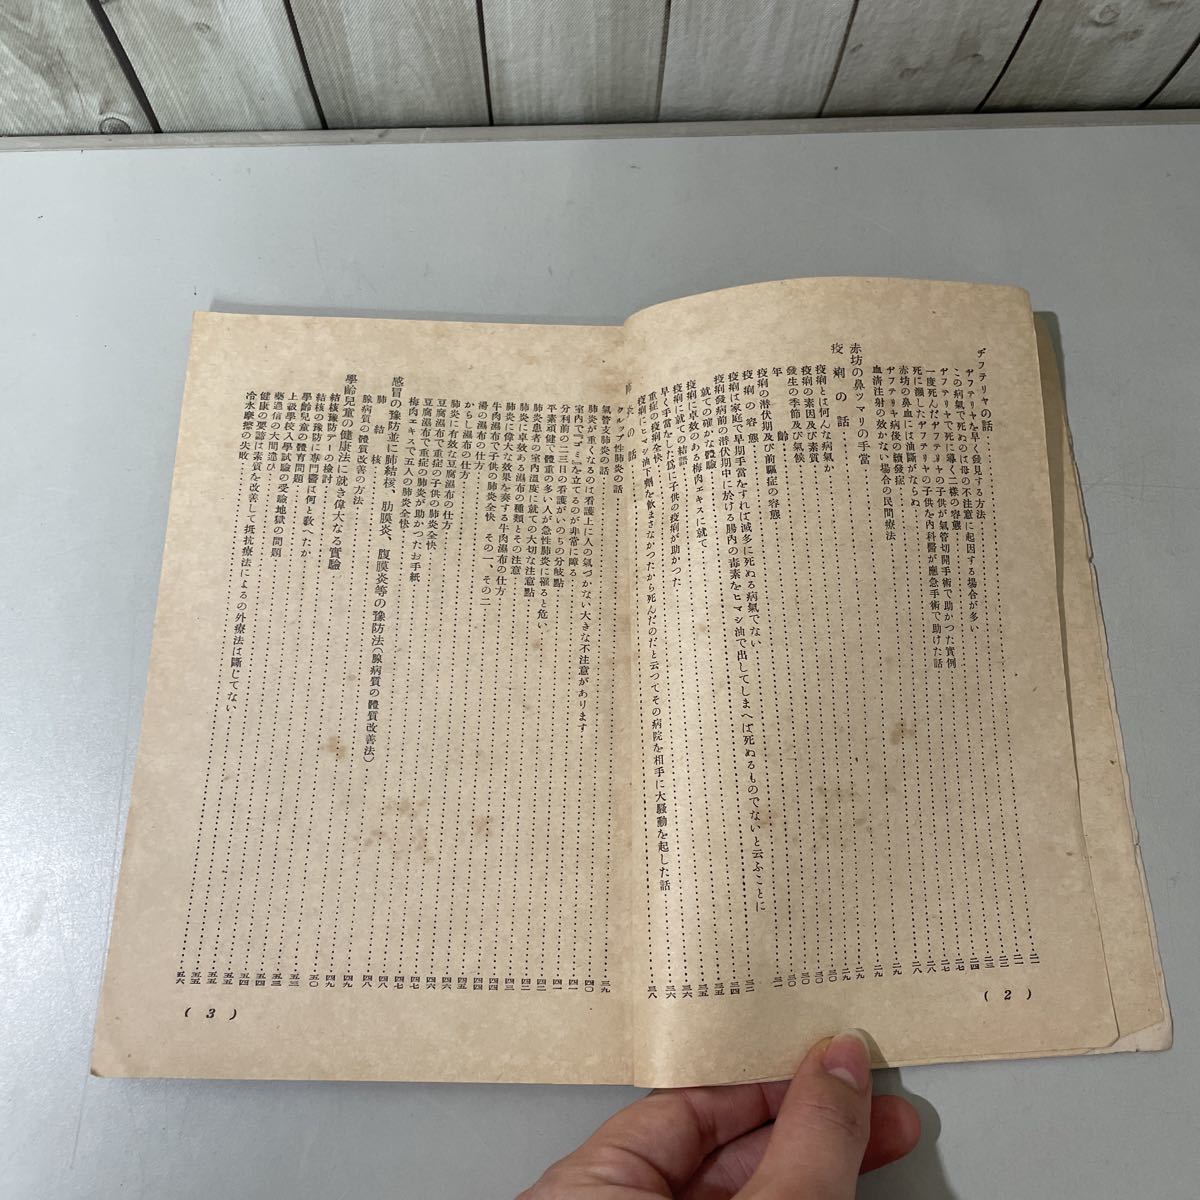 ヂフテリヤの話
ヂフテリヤを早く發見する方法
この病氣で死ぬのは母の不注意に起因する場合が多い
ヂフテリヤで死に導く二樣の容態
一度死んだヂフテリヤの子供が氣管切開手術で助かつた實例
死に瀕したヂフテリヤの子供を內科醫が應急手術で助けた話
赤坊の鼻血には油斷がならぬ
ヂフテリヤ病後の續發症
血淸注射の效かない場合の民間療法
赤坊の鼻ツマリの手當
疫痢の話
疫痢とは何んな病氣か
疫痢の素因及び素質
發生の季節及び氣候
年齡
疫痢の潜伏期及び前驅症の容態
疫痢の容態
疫痢は家庭で早期手當をすれば滅多に死ぬる病氣でない
疫痢發病前の潜伏期中に於ける腸內の毒素をヒマシ油で出してしまへば死ぬるものでないと云ふことに
就ての確かな體驗
疫痢に卓效のある梅肉エキスに就て
疫痢に就ての結語
早く手當をした爲に子供の疫痢が助かつた
重症の疫痢全快
疫痢にヒマシ油下劑を飮まさなかつたから死んだのだと云つてその病院を相手に大騷動を起した話
(2)
肺炎の話
クループ性肺炎の話
氣管支肺炎の話
肺炎が重くなるのは看護上に人の氣づかない大きな不注意があります
室內で『ゴミ』を立てるのが非常に障る
分利前の二三日の看護がいのちの分岐點
平素頑健で、體重の多い人が急性肺炎に罹ると危い
肺炎患者の室內溫度に就ての大切な注意點
肺炎に卓效ある濕布の種類とその注意
肺炎に偉大な效果を奏する牛肉濕布の仕方
牛肉濕布で子供の肺炎全快 その一、その二
湯の濕布の仕方
からし濕布の仕方
肺炎に有效な豆腐濕布の仕方
豆腐濕布で重症の子供の肺炎全快
豆腐濕布で重症の肺炎が助かつたお手紙
梅肉エキスで五人の肺炎全快
感冒の豫防並に肺結核、肋膜炎、腹膜炎等の豫防法(腺病質の體質改善法)
肺結核
腺病質の體質改善の方法
學齡兒童の健康法に就き偉大なる實驗
結核豫防デーの檢討
結核の豫防に專門醫は何と敎へたか
學齡兒童の體育問題
上級學校入學試驗の受驗地獄の問題
藥過信の大間違ひ
健康の要諦は素質を改善して抵抗療法によるの外療法は斷じてない
冷水摩擦の失敗
(3)